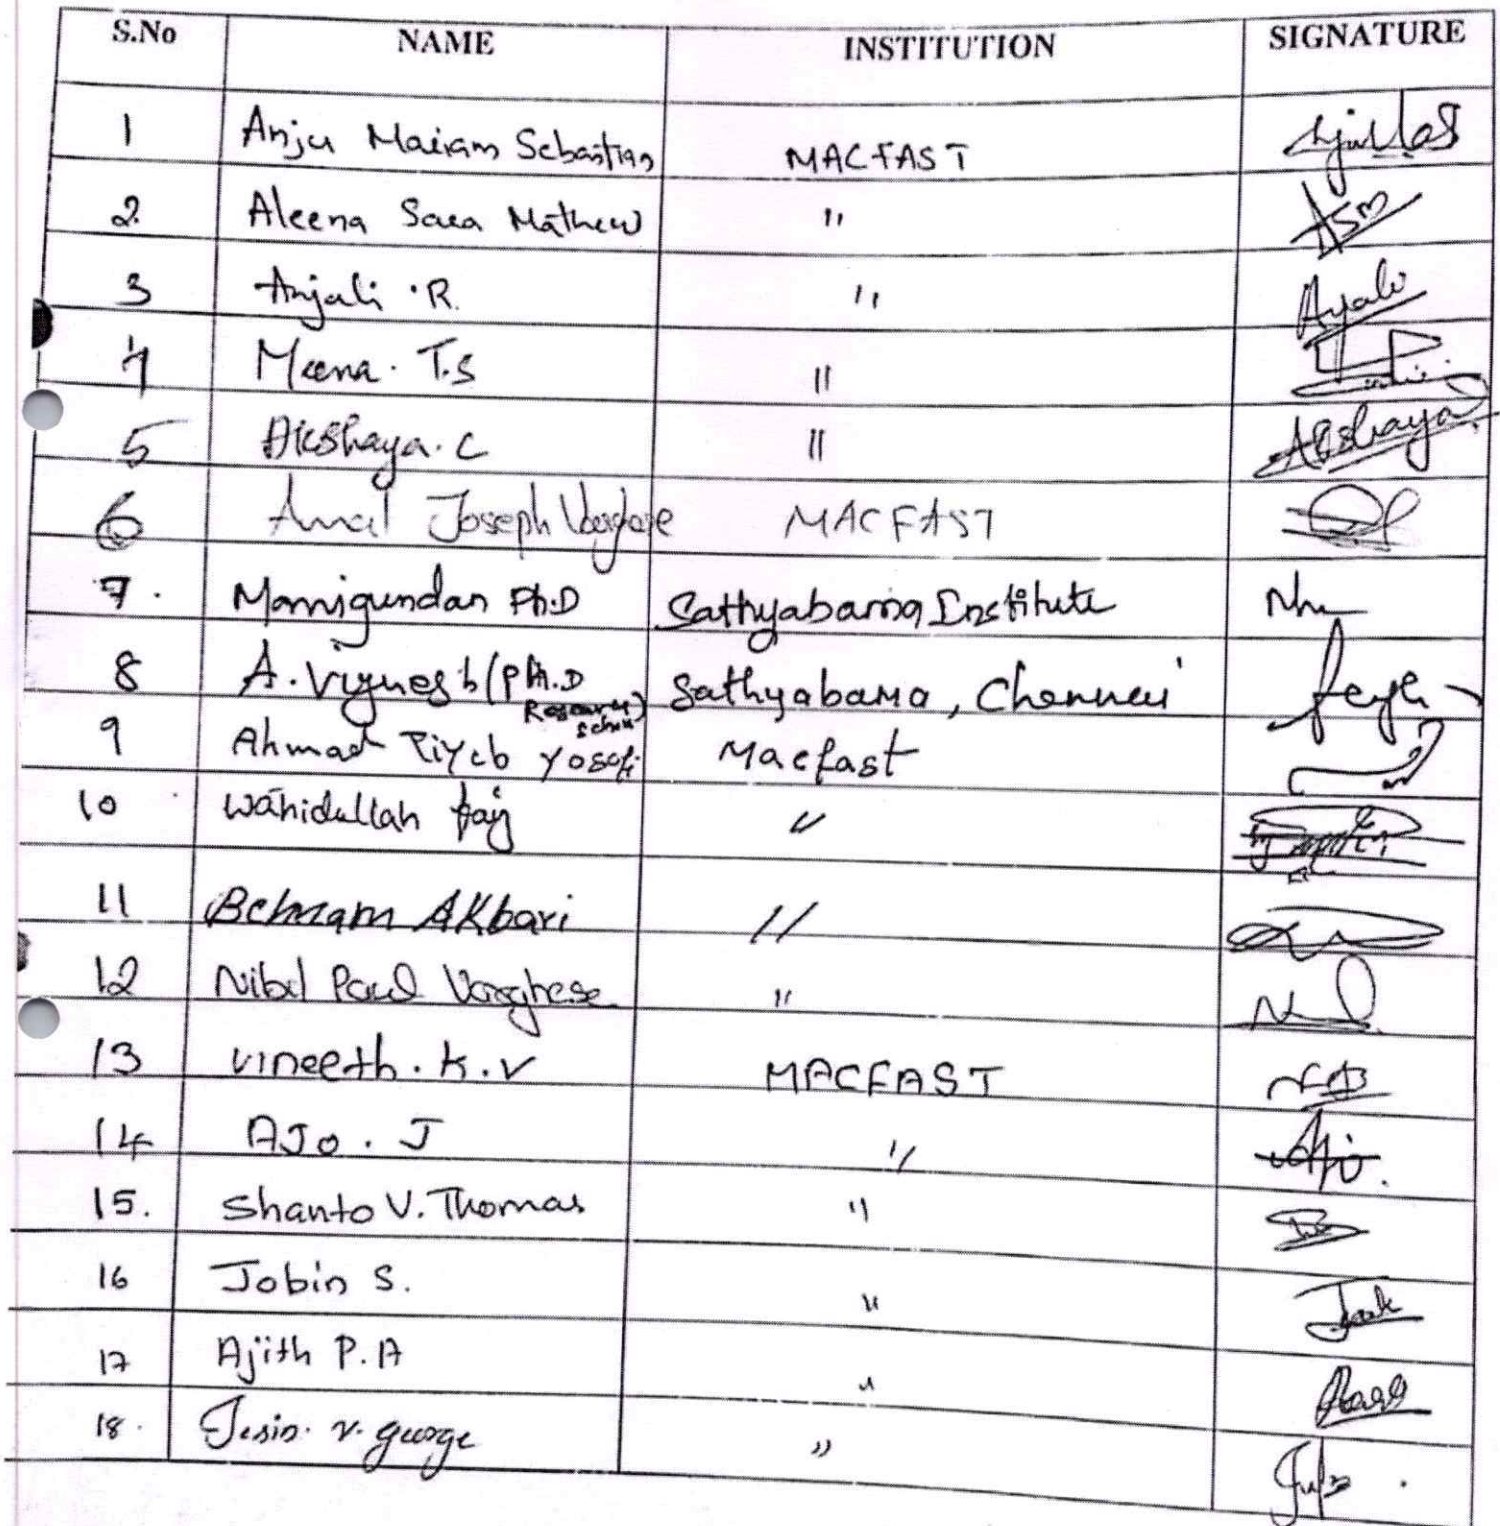 S.No NAME INSTITUTION SIGNATURE
1 Anju Mairam Sebastian MACFAST
2 Aleena Sara Mathew "
3 Anjali .R. " Anjali
4 Meena. T.S "
5 Akshaya. C " Akshaya
6 Amal Joseph Varghese MACFAST
7. Manigundan Ph.D Sathyabama Institute
8 A. Vignesh (Ph.D Research Scholar) Sathyabama, Chennai
9 Ahmad Yosofi Macfast
10 Wahidullah "
11 Behnam Akbari "
12 Paul Varghese "
13 Vineeth. K. V MACFAST
14 AJo. J " Ajo.
15. Shanto V. Thomas "
16 Jobin S. "
17 Ajith P. A "
18. Jesin. V. George "